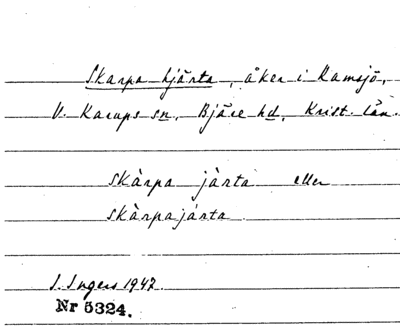 Skarpa hjärta, åker i Ramsjö,
V. Karups sn, Bjäre hd, Krist. län.
skàrpa jàrta eller
skàrpajàrta.
I. Ingers 1942.
Nr 5324.